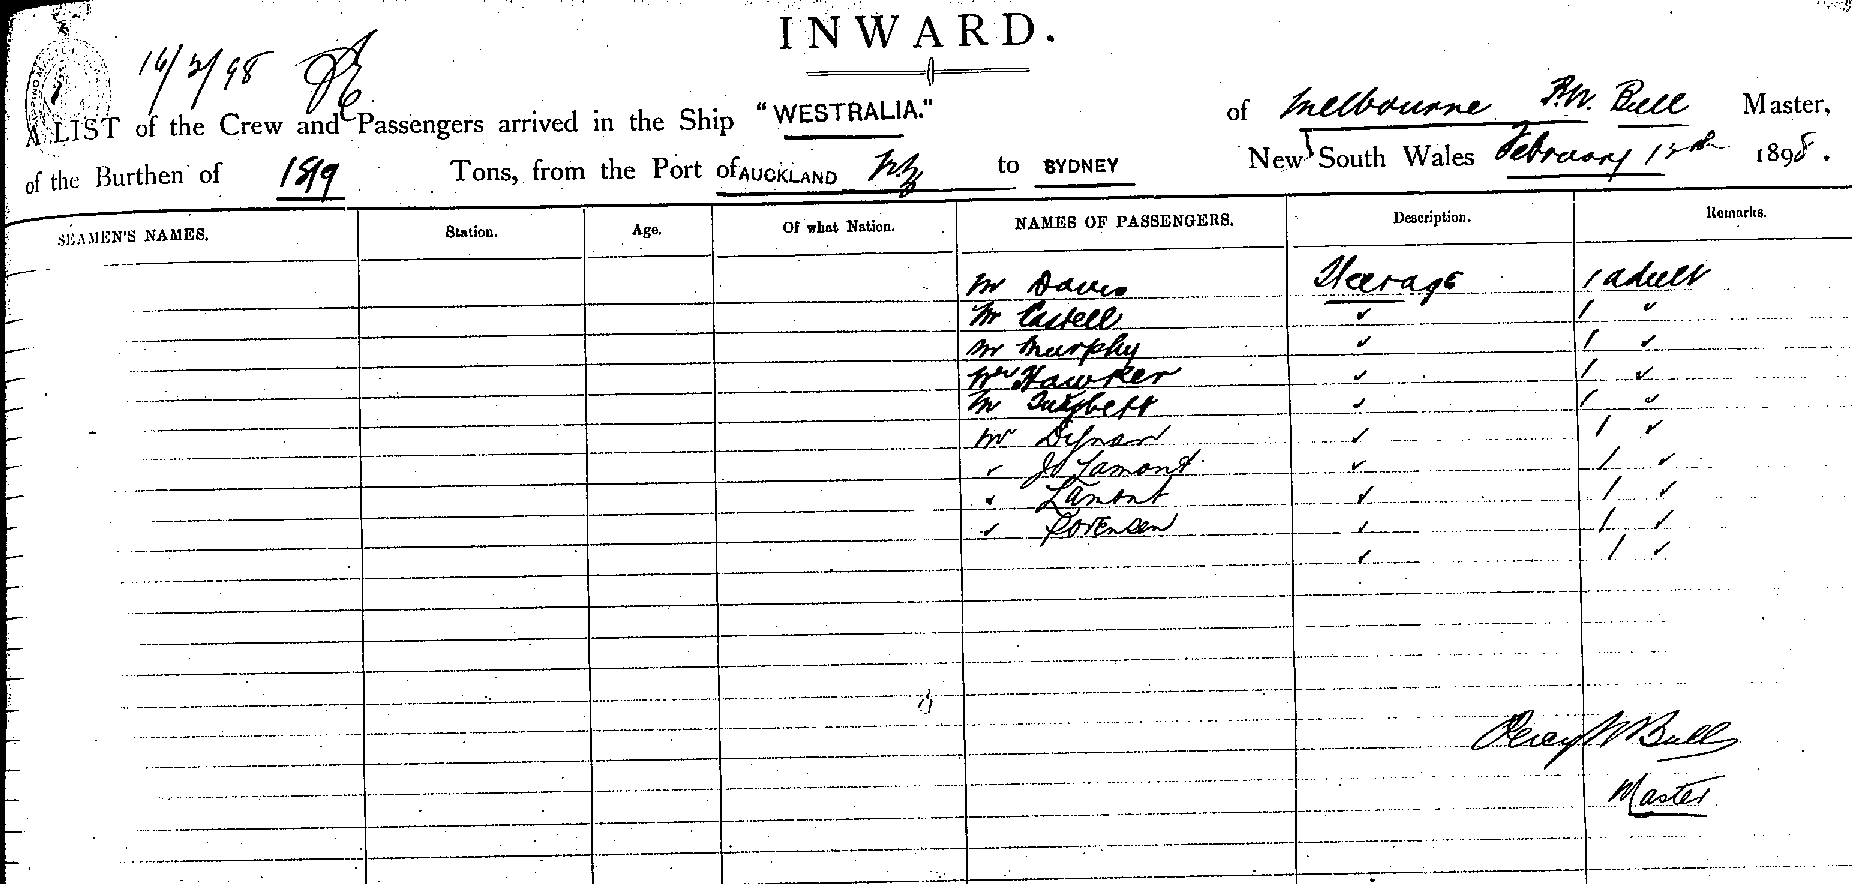 INWARD.
16/2/98
A LIST of the Crew and Passengers arrived in the Ship "WESTRALIA." of Melbourne P.W. Bull Master,
of the Burthen of 1819 Tons, from the Port of AUCKLAND NZ to SYDNEY New South Wales February 15th 1898.
SEAMEN'S NAMES. Station. Age. Of what Nation. NAMES OF PASSENGERS. Description. Remarks.
Mr Davis Steerage 1 adult
Mr Castell 1
Mr Murphy 1
Mr Hawker 1
Mr 1
Mr 1
Lamont 1
Lamont 1
Sorensen 1
1
Percy W Bull
Master